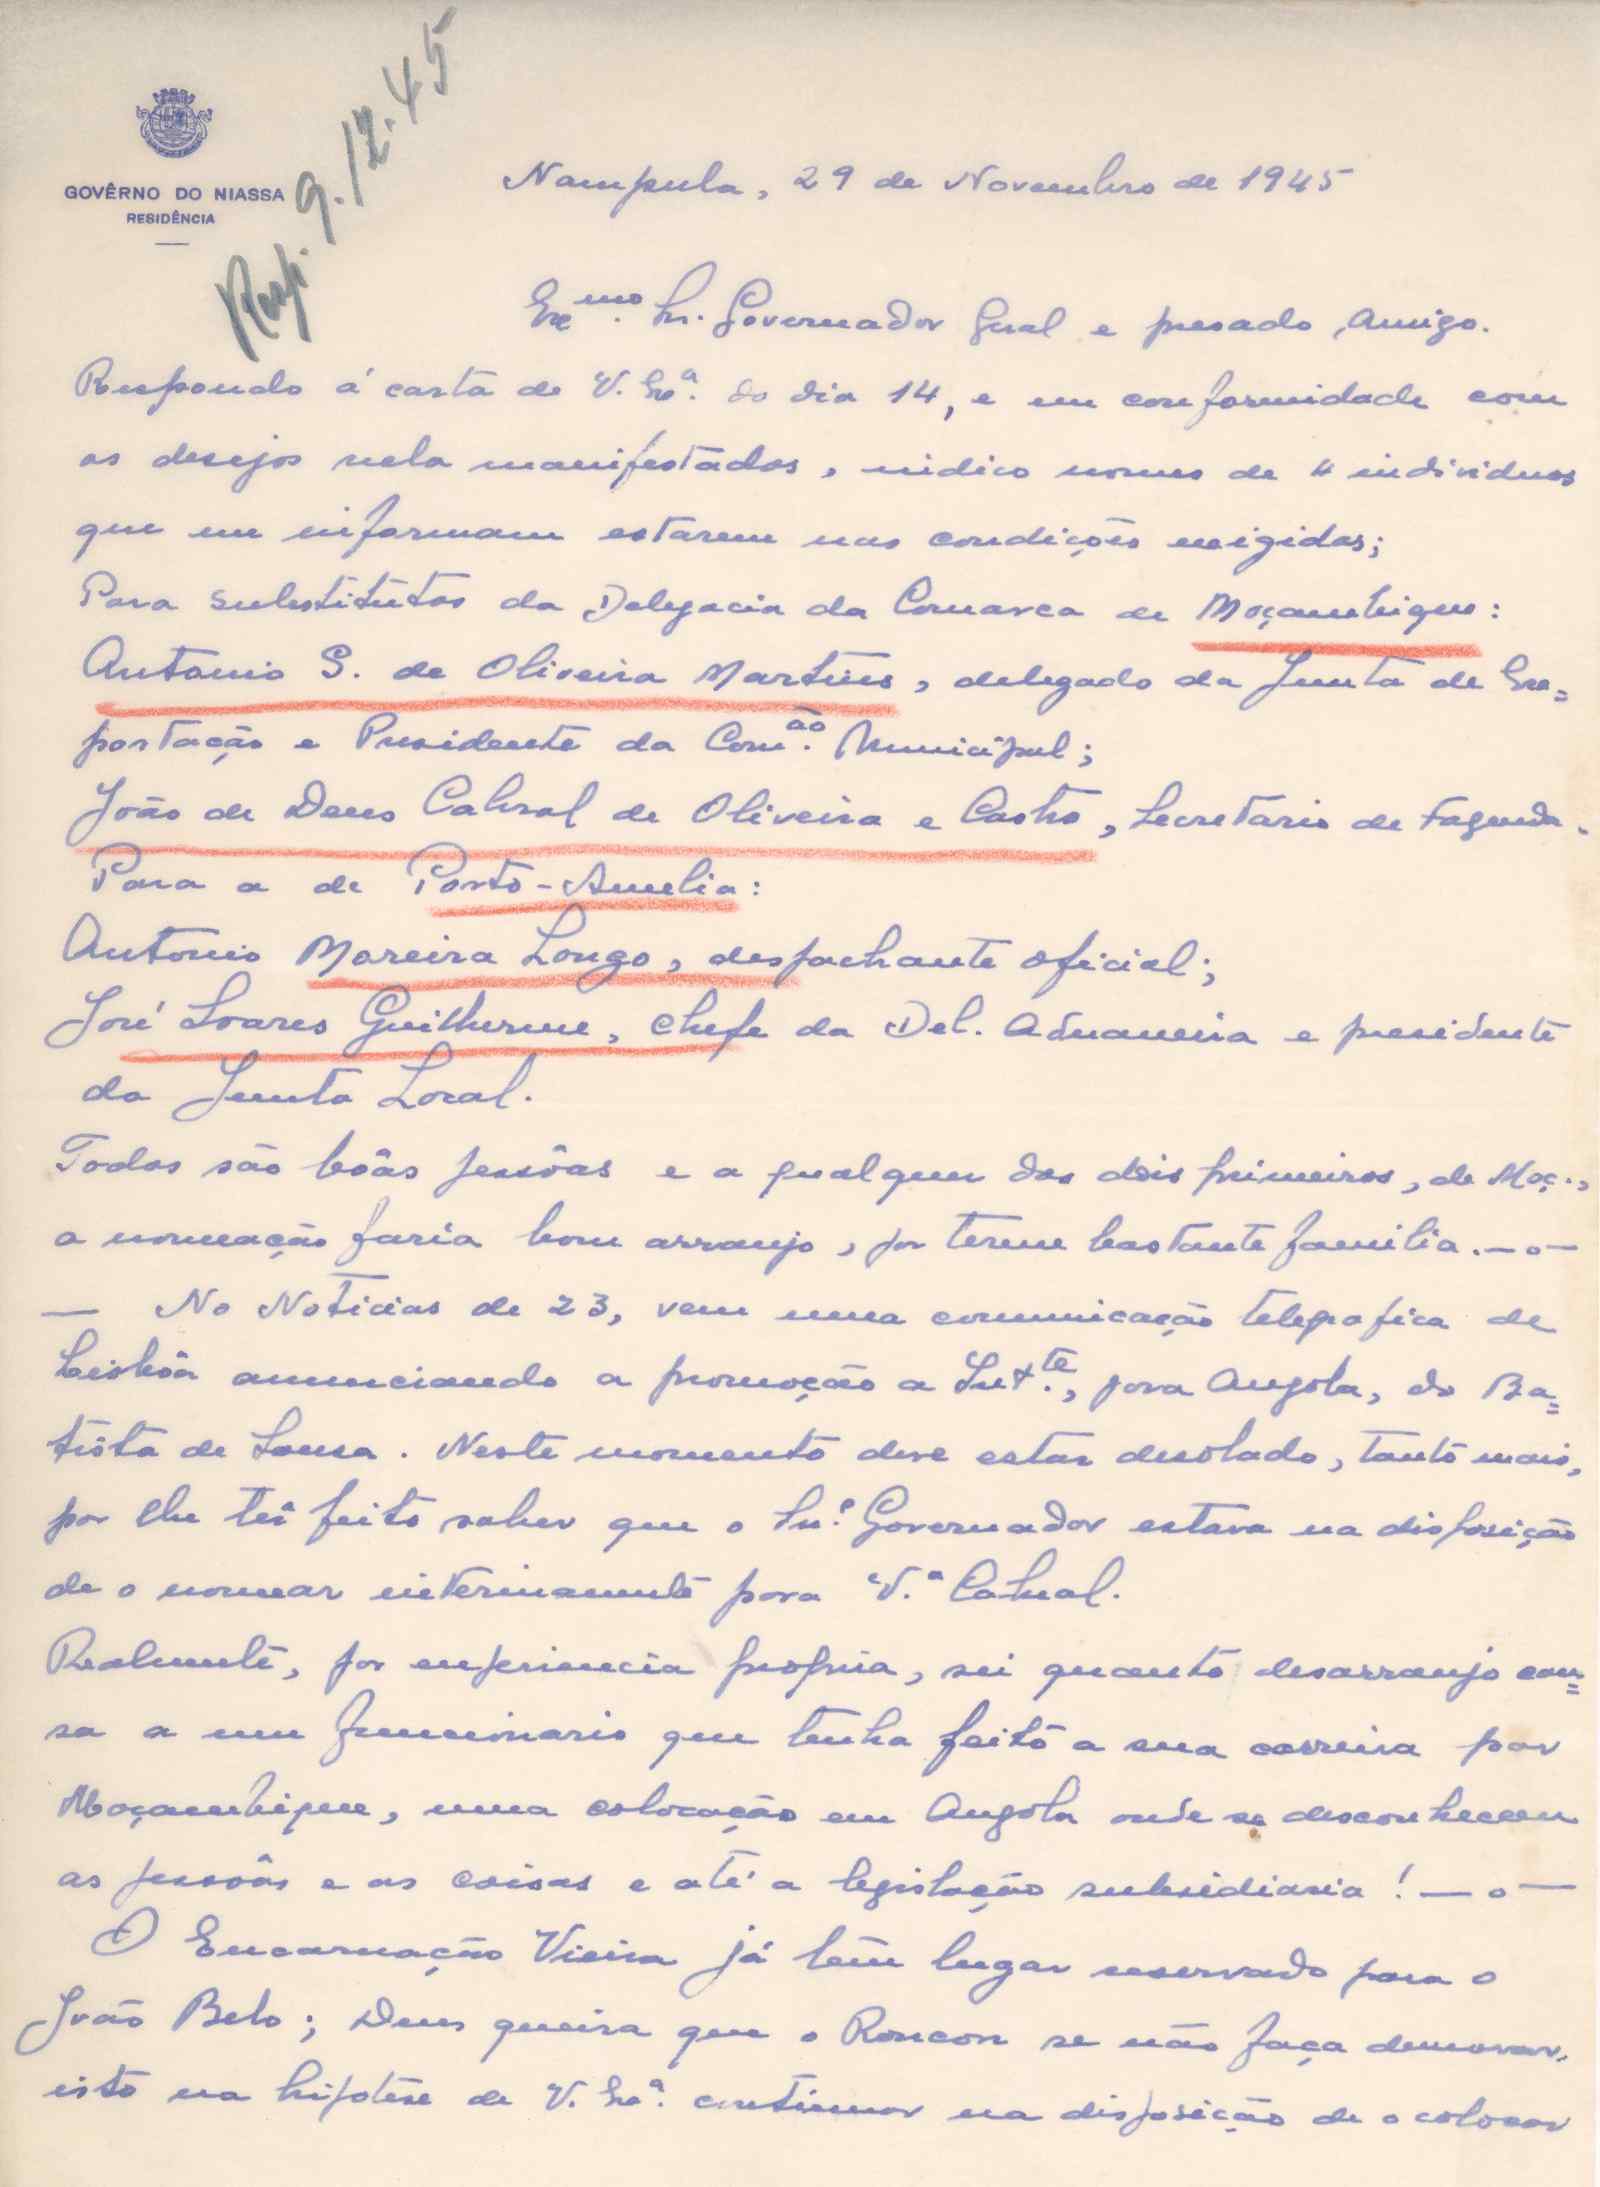 Resp. 9.12.45
GOVÊRNO DO NIASSA
RESIDÊNCIA
Nampula, 29 de Novembro de 1945
Exmo. Sr. Governador Geral e presado Amigo.
Respondo á carta de V. Exª. do dia 14, e em conformidade com
os desejos nela manifestados, indico nomes de 4 individuos
que me informam estarem nas condições exigidas;
Para substitutos da Delegacia da Comarca de Moçambique:
Antonio S. de Oliveira Martins, delegado da Junta de Ex=
portação e Presidente da Com.ão Municipal;
João de Deus Cabral de Oliveira e Castro, Secretario de Fazenda.
Para a de Porto-Amelia:
Antonio Moreira Longo, despachante oficial;
José Soares Guilherme, chefe da Del. Aduaneira e presidente
da Junta Local.
Todos são bôas pessôas e a qualquer dos dois primeiros, de Moç.,
a nomeação faria bom arranjo, por terem bastante familia. —o—
— No Noticias de 23, vem uma comunicação telegrafica de
Lisbôa anunciando a promoção a Int.te, para Angola, do Ba=
tista de Sousa. Neste momento deve estar desolado, tanto mais,
por lhe ter feito saber que o Snr. Governador estava na disposição
de o nomear interinamente para V.ª Cabral.
Realmente, por experiencia propria, sei quanto desarranjo cau=
sa a um funcionario que tenha feito a sua carreira por
Moçambique, uma colocação em Angola onde se desconhecem
as pessôas e as coisas e até a legislação subsidiaria! —o—
O Encarnação Vieira já têm lugar reservado para o
João Belo; Deus queira que o Roncon se não faça demorar,
isto na hipótese de V. Exª. continuar na disposição de o colocar